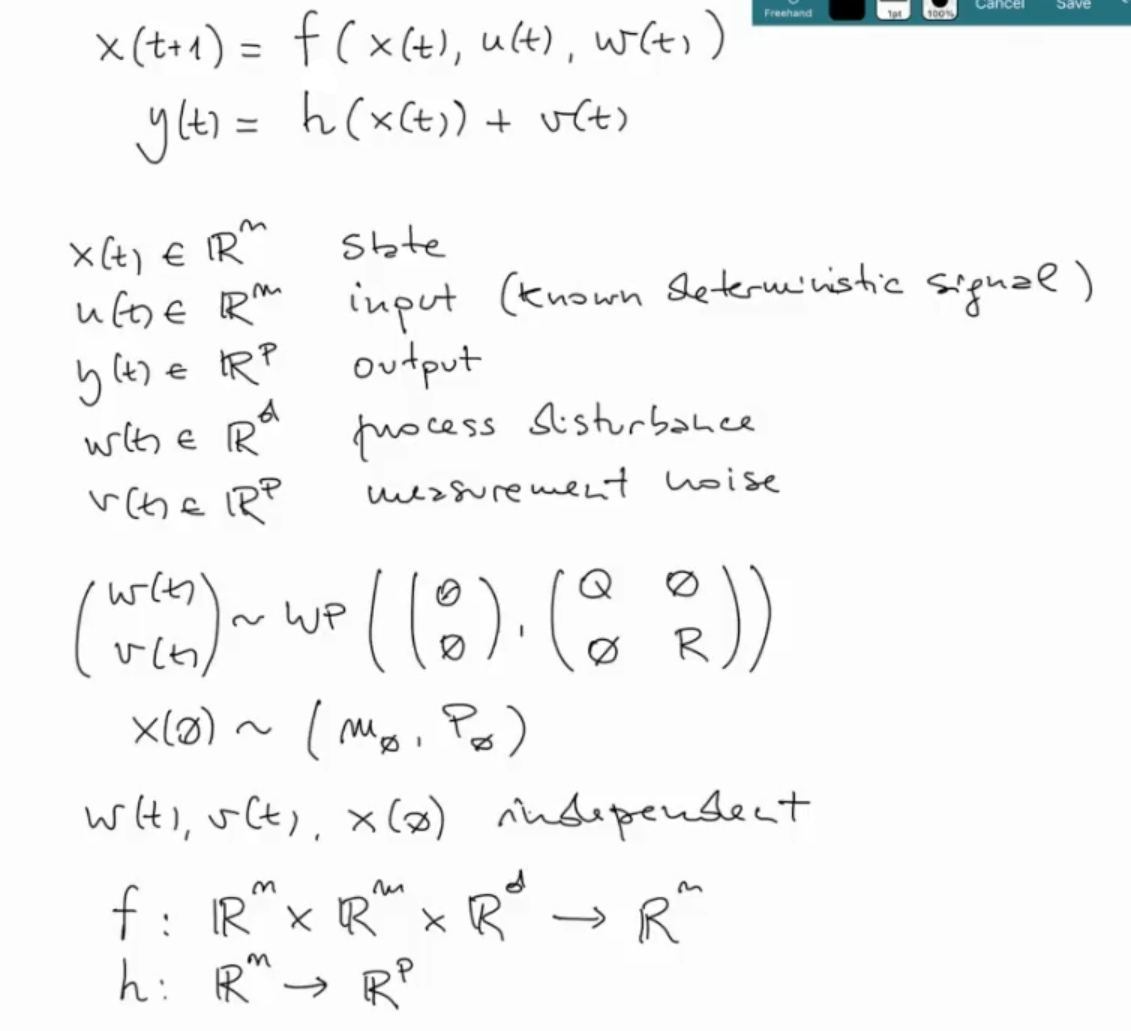 Freehand 1pt 100% Cancel Save
x(t+1) = f(x(t), u(t), w(t))
y(t) = h(x(t)) + v(t)
x(t) ∈ ℝⁿ state
u(t) ∈ ℝᵐ input (known deterministic signal)
y(t) ∈ ℝᵖ output
w(t) ∈ ℝᵈ process disturbance
v(t) ∈ ℝᵖ measurement noise
(w(t) v(t)) ~ WP ((∅ ∅), (Q ∅ ∅ R))
x(∅) ~ (m_∅, P_∅)
w(t), v(t), x(∅) independent
f: ℝⁿ × ℝᵐ × ℝᵈ → ℝⁿ
h: ℝⁿ → ℝᵖ